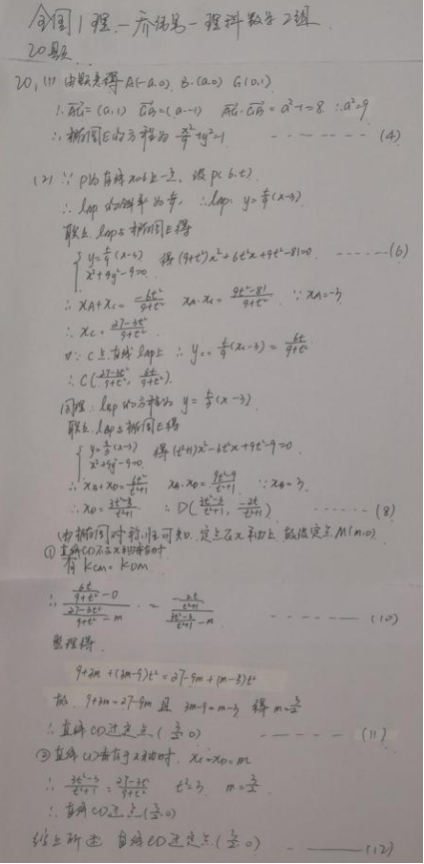 全国1理-乔伟男-理科数学2组
20题
20, (1) 由题意得 A(-a,0), B(a,0) G(0,1)
∴ AG=(a,1) GB=(a,-1) AG·GB=a²-1=8 ∴a²=9
∴ 椭圆E的方程为 x²/9+y²=1 ------- (4)
(2) ∵ P为直线x=6上一点, 设P(6,t)
∴ lAP的斜率为 t/9, ∴lAP: y=t/9(x+3)
联立 lAP与椭圆E得
{ y=t/9(x+3)
x²+9y²-9=0 得(9+t²)x²+6t²x+9t²-81=0 ----- (6)
∴ xA+xC=-6t²/9+t² xA·xC=9t²-81/9+t² ∵ xA=-3
∴ xC=27-3t²/9+t²
又∵ C点在直线lAP上 ∴ yC=t/9(xC+3)=6t/9+t²
∴ C(27-3t²/9+t², 6t/9+t²)
同理: lBP的方程为 y=t/3(x-3)
联立 lBP与椭圆E得
{ y=t/3(x-3)
x²+9y²-9=0 得(t²+1)x²-6t²x+9t²-9=0
∴ xB+xD=6t²/t²+1 xB·xD=9t²-9/t²+1 ∵xB=3
∴ xD=3t²-3/t²+1 ∴ D(3t²-3/t²+1, -2t/t²+1) ------ (8)
由椭圆对称性可知, 定点在x轴上, 故设定点M(m,0)
① 直线CD不与x轴垂直时
有 kCM=kDM
∴ 6t/9+t² -0 / 27-3t²/9+t² -m = -2t/t²+1 / 3t²-3/t²+1 -m ------ (10)
整理得
9+3m+(3m-9)t²=27-9m+(m-3)t²
故, 9+3m=27-9m 且 3m-9=m-3 得 m=3/2
∴ 直线CD过定点(3/2,0) ----- (11)
② 直线CD垂直于x轴时, xC=xD=m
∴ 3t²-3/t²+1=27-3t²/9+t² t²=3, m=3/2
∴ 直线CD过点(3/2,0)
综上所述 直线CD过定点(3/2,0) ------ (12)